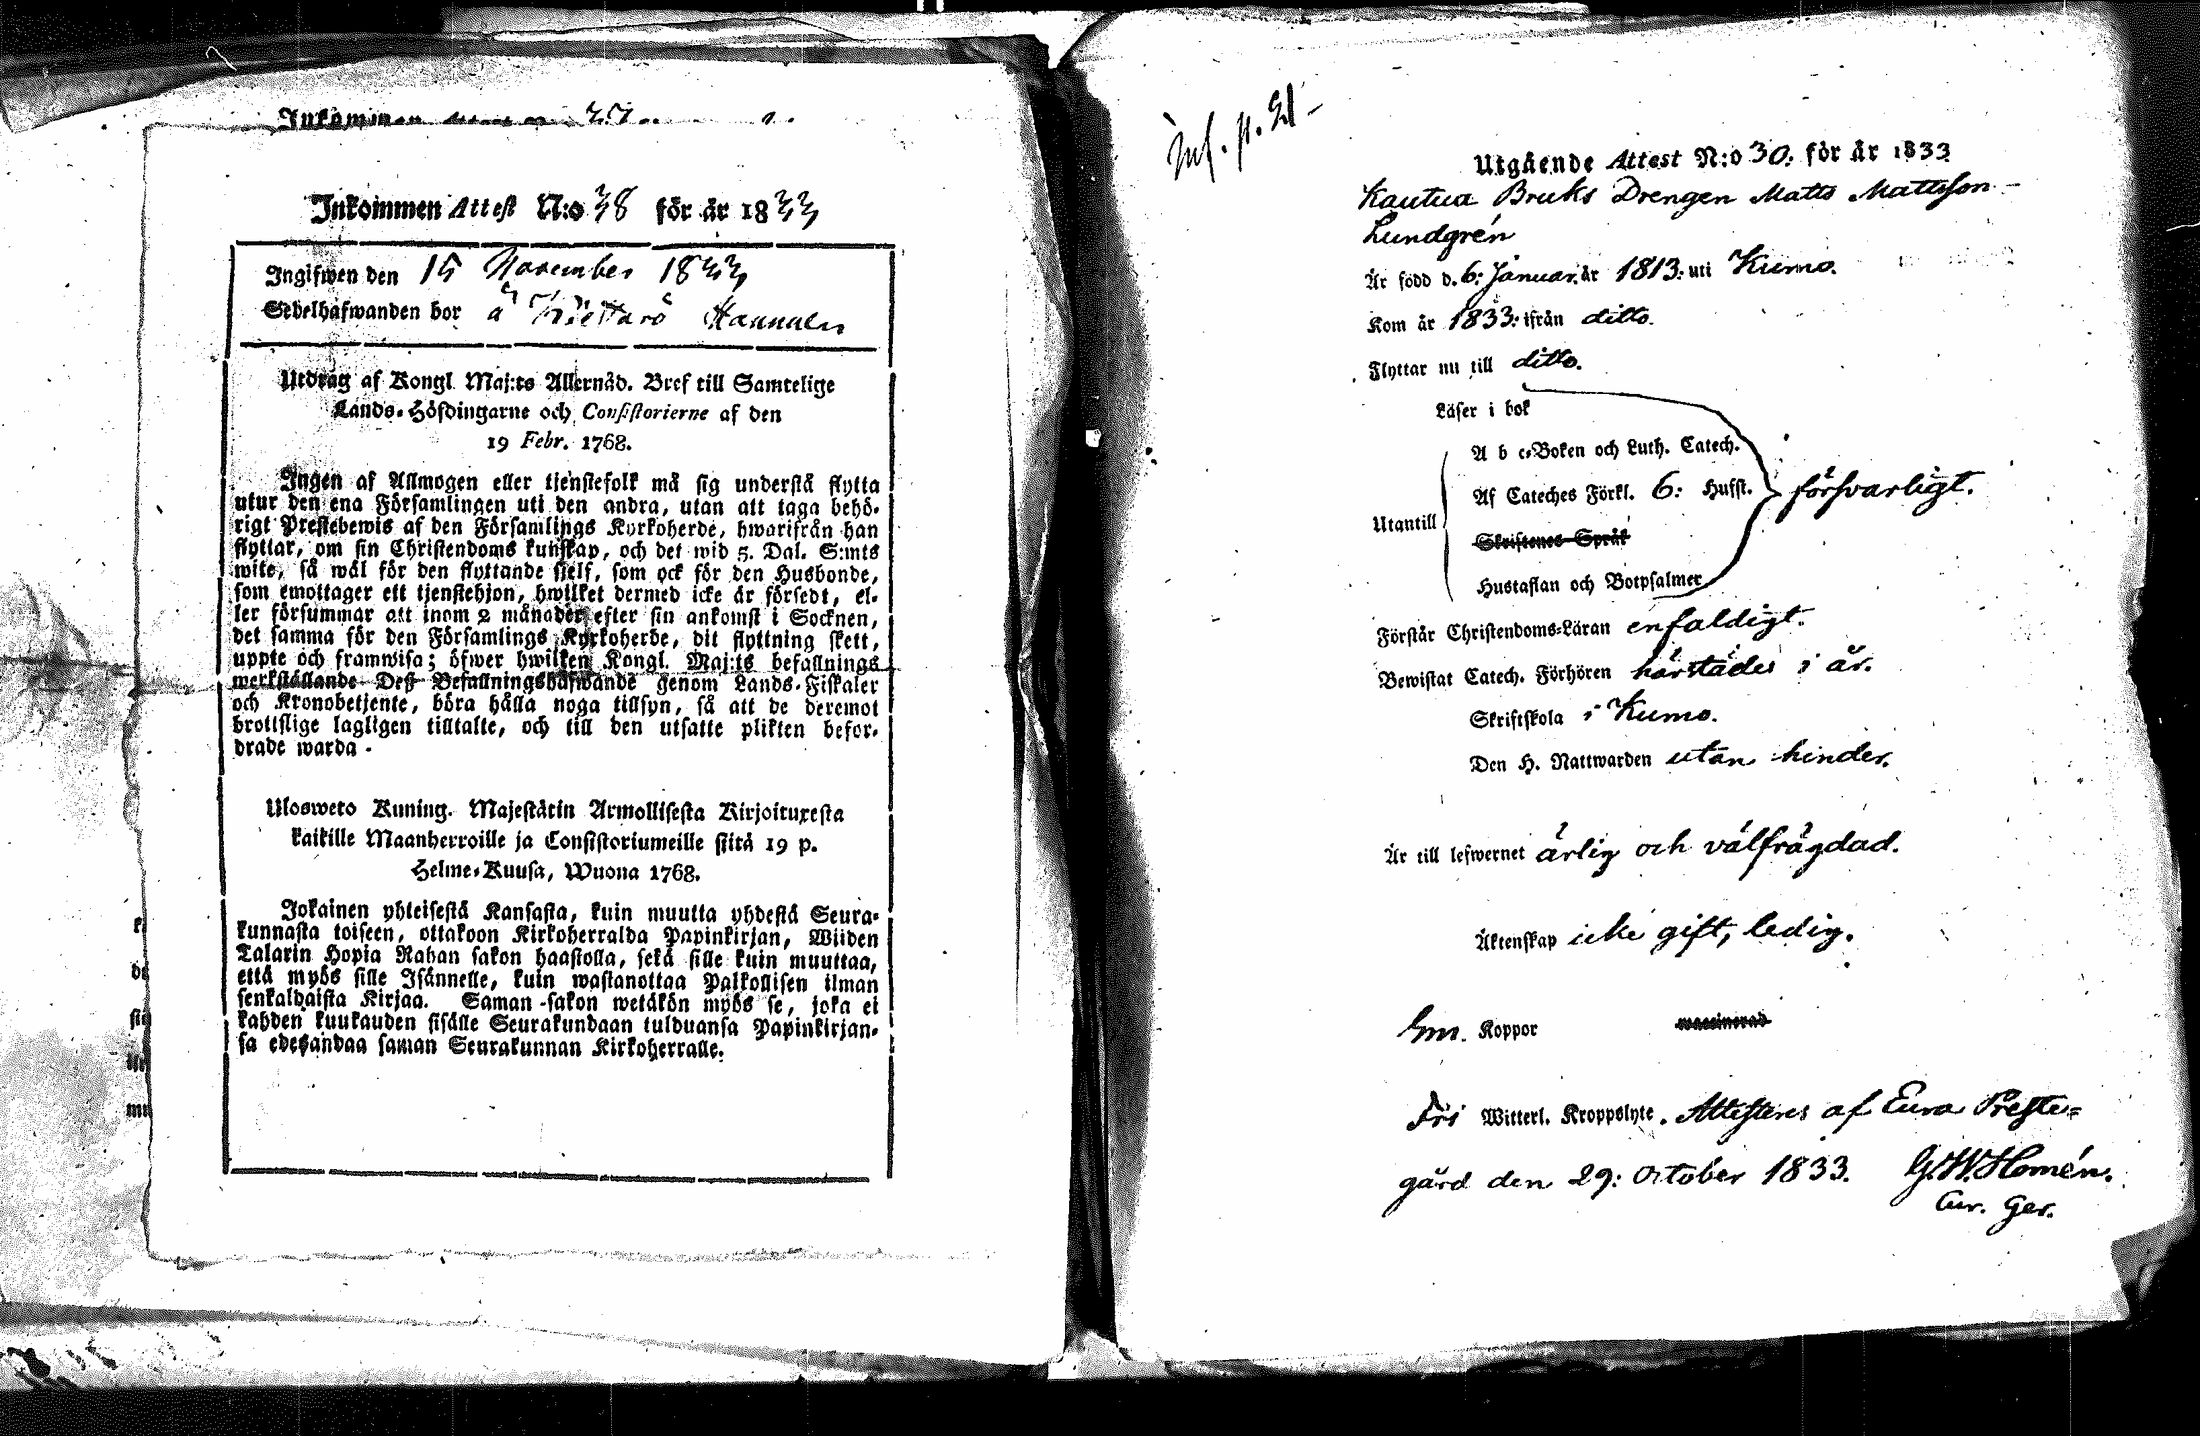 Inkommen
Inkommen Attest N:o 38 för år 1833
Ingifwen den 15 November 1833
Sedelhafwanden bor å
Utdrag af Kongl. Maj:ts Allernåd. Bref till Samtelige
Lands-Höfdingarne och Consistorierne af den
19 Febr. 1768.
Ingen af Allmogen eller tjenstefolk må sig understå flytta
utur den ena Församlingen uti den andra, utan att taga behö-
rigt Prestebewis af den Församlings Kyrkoherde, hwarifrån han
flyttar, om sin Christendoms kunskap, och det wid 5. Dal. S:mts
wite, så wäl för den flyttande sjelf, som ock för den Husbonde,
som emottager ett tjenstehjon, hwilket dermed icke är försedt, el-
ler försummar att inom 2 månader efter sin ankomst i Socknen,
det samma för den Församlings Kyrkoherde, dit flyttning skett,
uppte och framwisa; öfwer hwilken Kongl. Maj:ts befallnings
werkställande Deß Befallningshafwande genom Lands-Fiskaler
och Kronobetjente, böra hålla noga tillsyn, så att de deremot
brottslige lagligen tilltalte, och till den utsatte plikten befor-
drade warda -
Ulosweto Kuning. Majestätin Armollisesta Kirjoituxesta
kaikille Maanherroille ja Consistoriumeille siitä 19 p.
Helme-Kuusa, Wuona 1768.
Jokainen yhteisestä Kansasta, kuin muutta yhdestä Seura-
kunnasta toiseen, ottakoon Kirkoherralda Papinkirjan, Wiiden
Talarin Hopia Rahan sakon haastolla, sekä sille kuin muuttaa,
että myös sille Isännelle, kuin wastanottaa Palkollisen ilman
senkaldaista Kirjaa. Saman-sakon wetäkön myös se, joka ei
kahden kuukauden sisälle Seurakundaan tulduansa Papinkirjan-
sa edesandaa saman Seurakunnan Kirkoherralle.
Inf. p. 21
Utgående Attest N:o 30. för år 1833
Kautua Bruks Drengen Matts Mattsson
Lundgrén
Är född d. 6: Januar. år 1813: uti Kumo.
Kom år 1833: ifrån ditto.
Flyttar nu till ditto.
Läser i bok
A b c-Boken och Luth. Catech.
Af Cateches Förkl. 6: Husst. försvarligt.
Utantill
Skriftenes Språk
Hustaflan och Botpsalmer
Förstår Christendoms-Läran enfaldigt.
Bewistat Catech. Förhören härstädes i år.
Skriftskola i Kumo.
Den H. Nattwarden utan hinder.
Är till lefwernet ärlig och välfrägdad.
Äktenskap icke gift, ledig.
Koppor waccinerad
Fri Witterl. Kroppslyte. Attesteres af Eura Preste-
gård den 29: October 1833. G. W. Homén.
Cur. Ger.